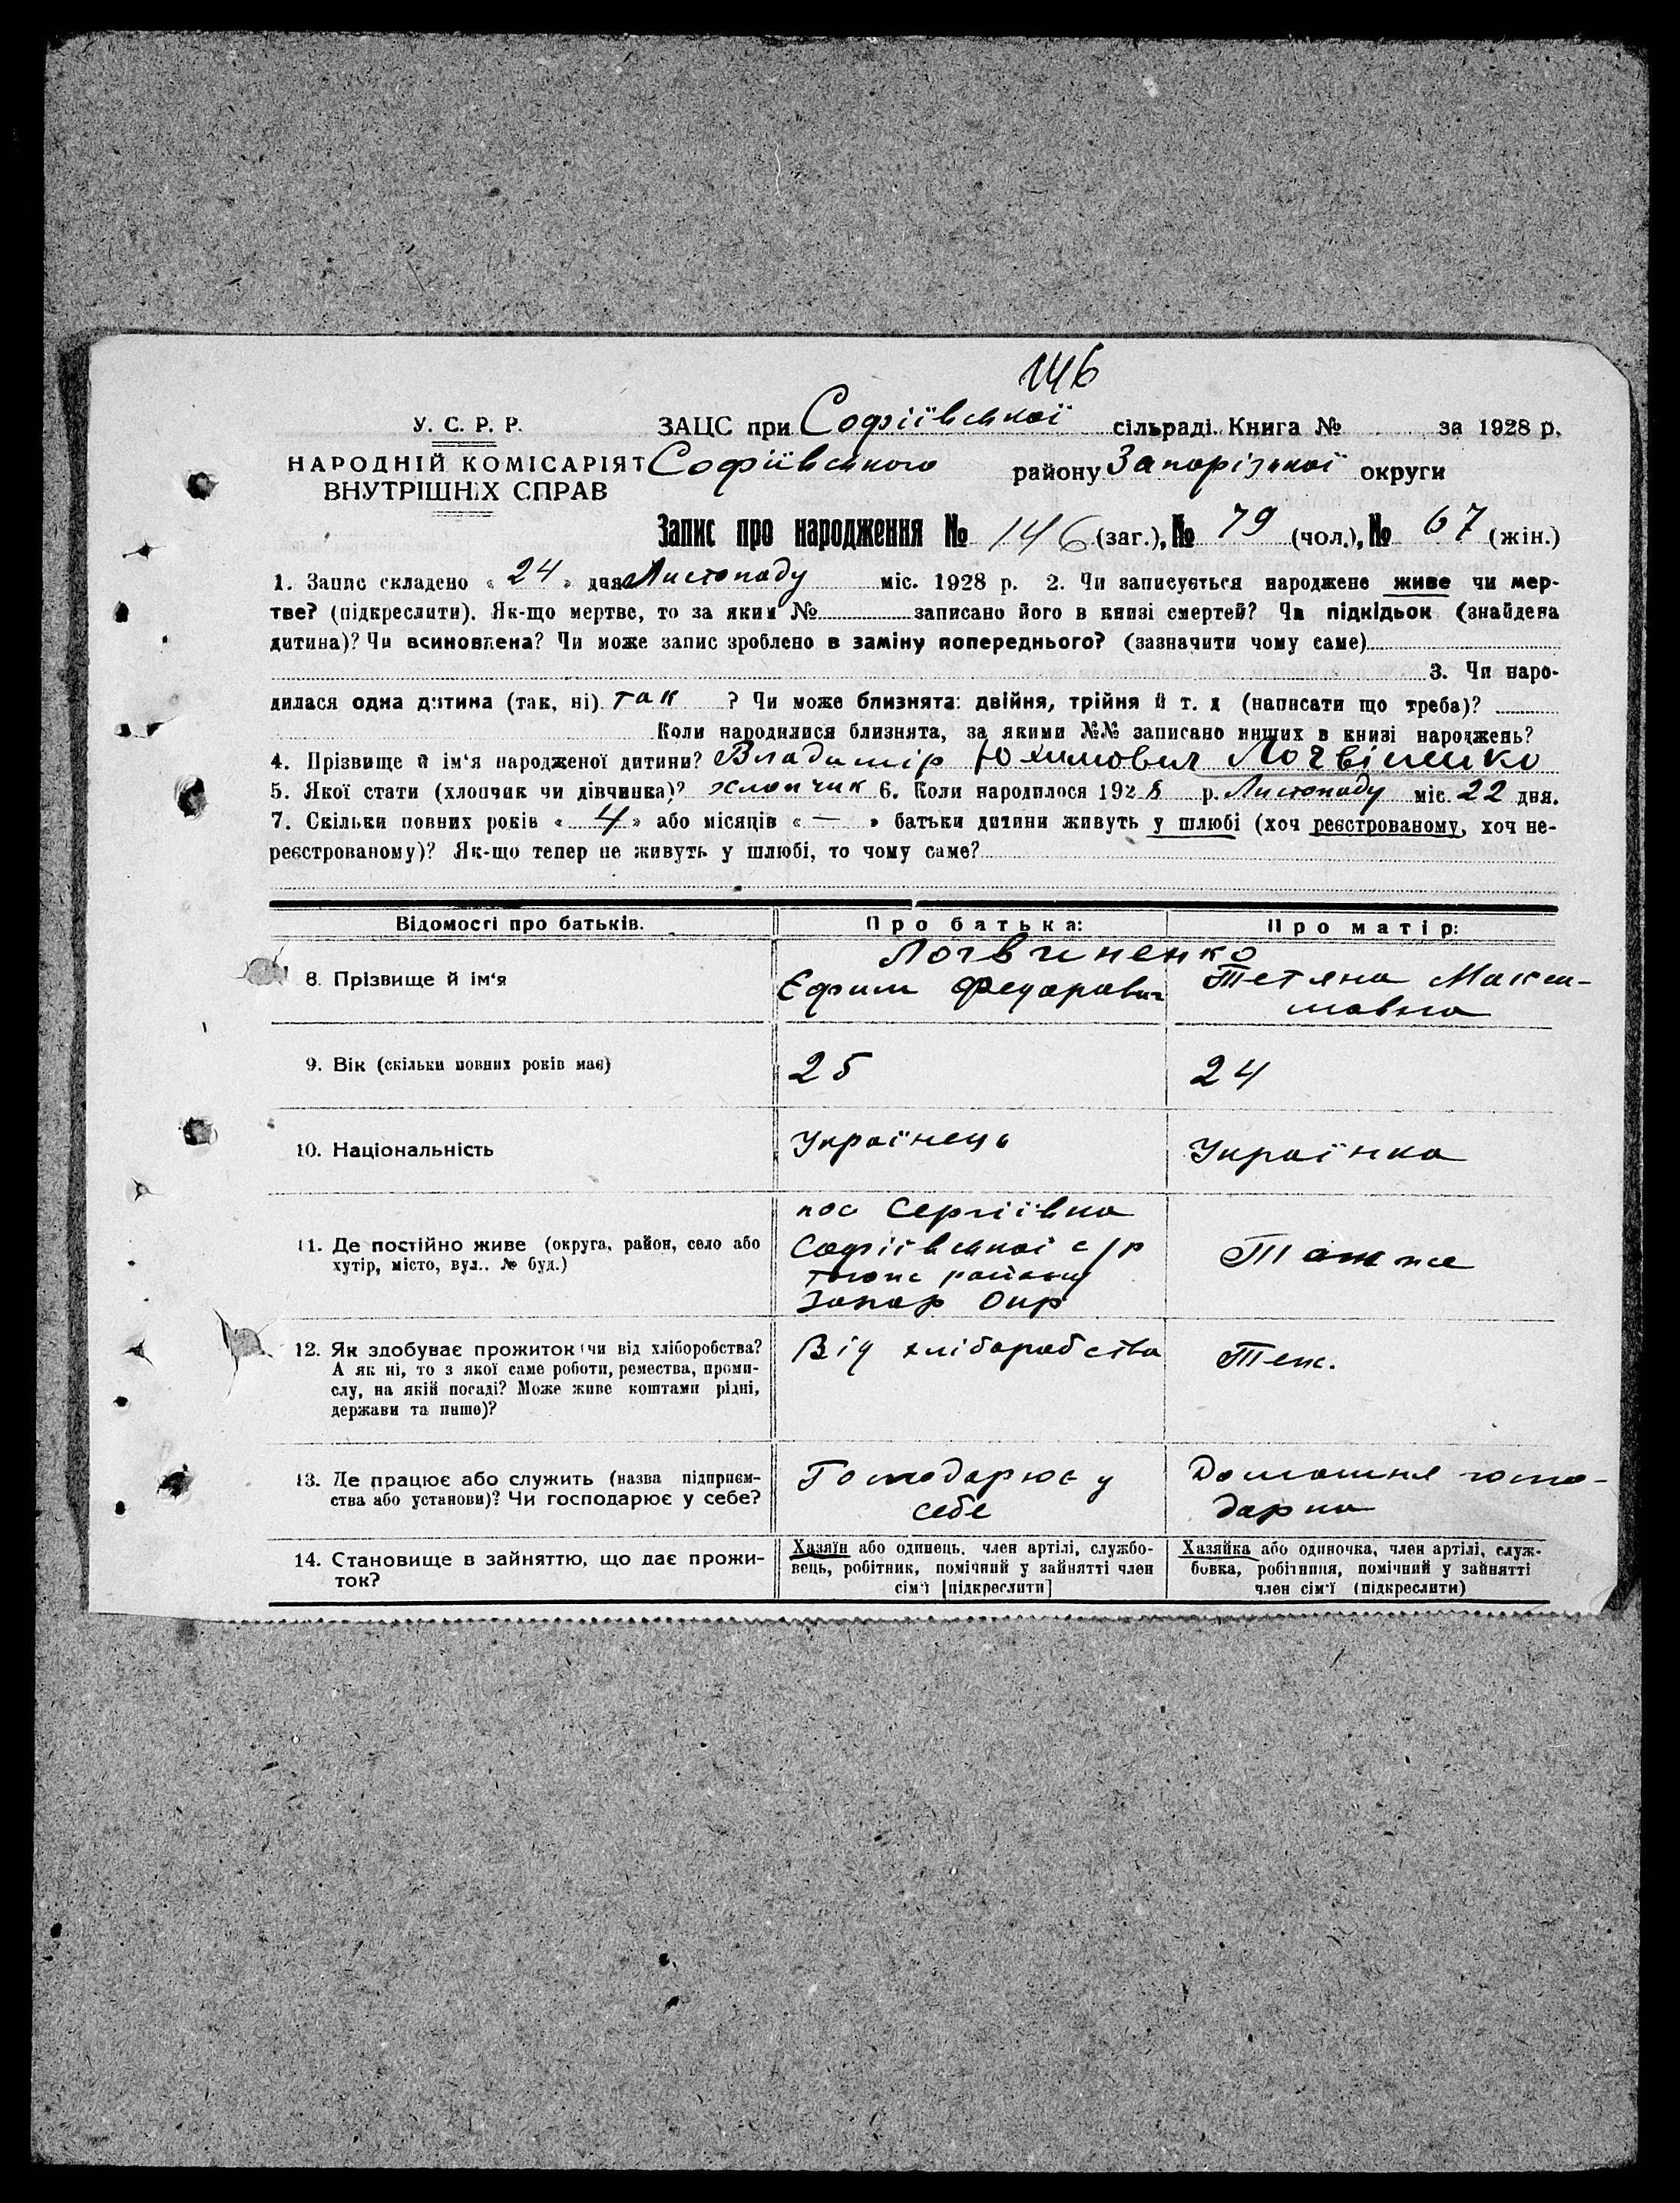 146
У. С. Р. Р.
НАРОДНІЙ КОМІСАРІЯТ
ВНУТРІШНІХ СПРАВ
ЗАЦС при Софіївської сільраді. Книга № за 1928 р.
Софіївського району Запорізької округи
Запис про народження № 146 (заг.), № 79 (чол.), № 67 (жін.)
1. Запис складено « 24 » дня Листопаду міс. 1928 р. 2. Чи записується народжене живе чи мер-
тве? (підкреслити). Як-що мертве, то за яким № записано його в книзі смертей? Чи підкідьок (знайдена
дитина)? Чи всиновлена? Чи може запис зроблено в заміну попереднього? (зазначити чому саме)
3. Чи наро-
дилася одна дитина (так, ні) так ? Чи може близнята: двійня, трійня й т. д (написати що треба)?
Коли народилися близнята, за якими №№ записано инших в книзі народжень?
4. Прізвище й ім‘я народженої дитини? Владимір Юхимович Логвіненко
5. Якої стати (хлопчик чи дівчинка)? хлопчик 6. Коли народилося 1928 р. Листопаду міс. 22 дня.
7. Скільки повних років « 4 » або місяців « — » батьки дитини живуть у шлюбі (хоч реєстрованому, хоч не-
реєстрованому)? Як-що тепер не живуть у шлюбі, то чому саме?
Відомості про батьків.
Про батька:
Про матір:
8. Прізвище й ім‘я
Логвиненко
Єфим Федарович
Тетяна Макси-
мовна
9. Вік (скільки повних років має)
25
24
10. Національність
Українець
Українка
11. Де постійно живе (округа, район, село або
хутір, місто, вул.. № буд.)
пос Сергіївка
Софіївської с/р
тогож району
Запор Окр
Там же
12. Як здобуває прожиток (чи від хліборобства?
А як ні, то з якої саме роботи, ремества, проми-
слу, на якій посаді? Може живе коштами рідні,
держави та инше)?
Від хліборобства
Теж.
13. Де працює або служить (назва підприєм-
ства або установи)? Чи господарює у себе?
Господарює у
себе
Домашня госпо-
дарка
14. Становище в зайняттю, що дає прожи-
ток?
Хазяїн або одинець, член артілі, службо-
вець, робітник, помічний у зайнятті член
сім‘ї [підкреслити]
Хазяйка або одиночка, член артілі, служ-
бовка, робітниця, помічний у зайнятті
член сім‘ї (підкреслити)